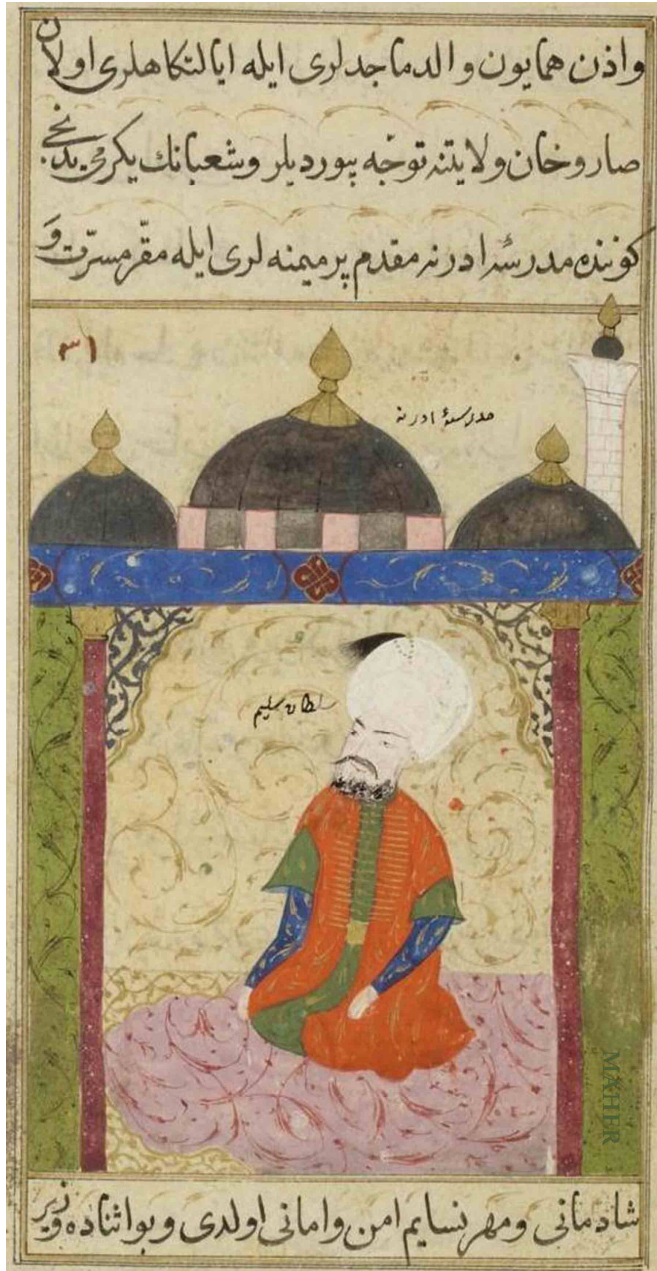 واذن همایون والد ماجدلری ایله ایالتكاهلری اولان
صاروخان ولایتنه توجّه بیوردیلر وشعبانك یكرمی یدنجی
كوننده مدرسۀ ادرنه مقدم پر میمنه لری ایله مقرّ مسرّت و
۳۱
مدرسۀ ادرنه
سلطان سلیم
MAHER
شادمانی ومهر نسایم امن وامانی اولدی وبواثناده وزیر